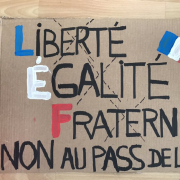 LIBERTÉ
ÉGALITÉ
FRATERN
NON AU PASS DE L